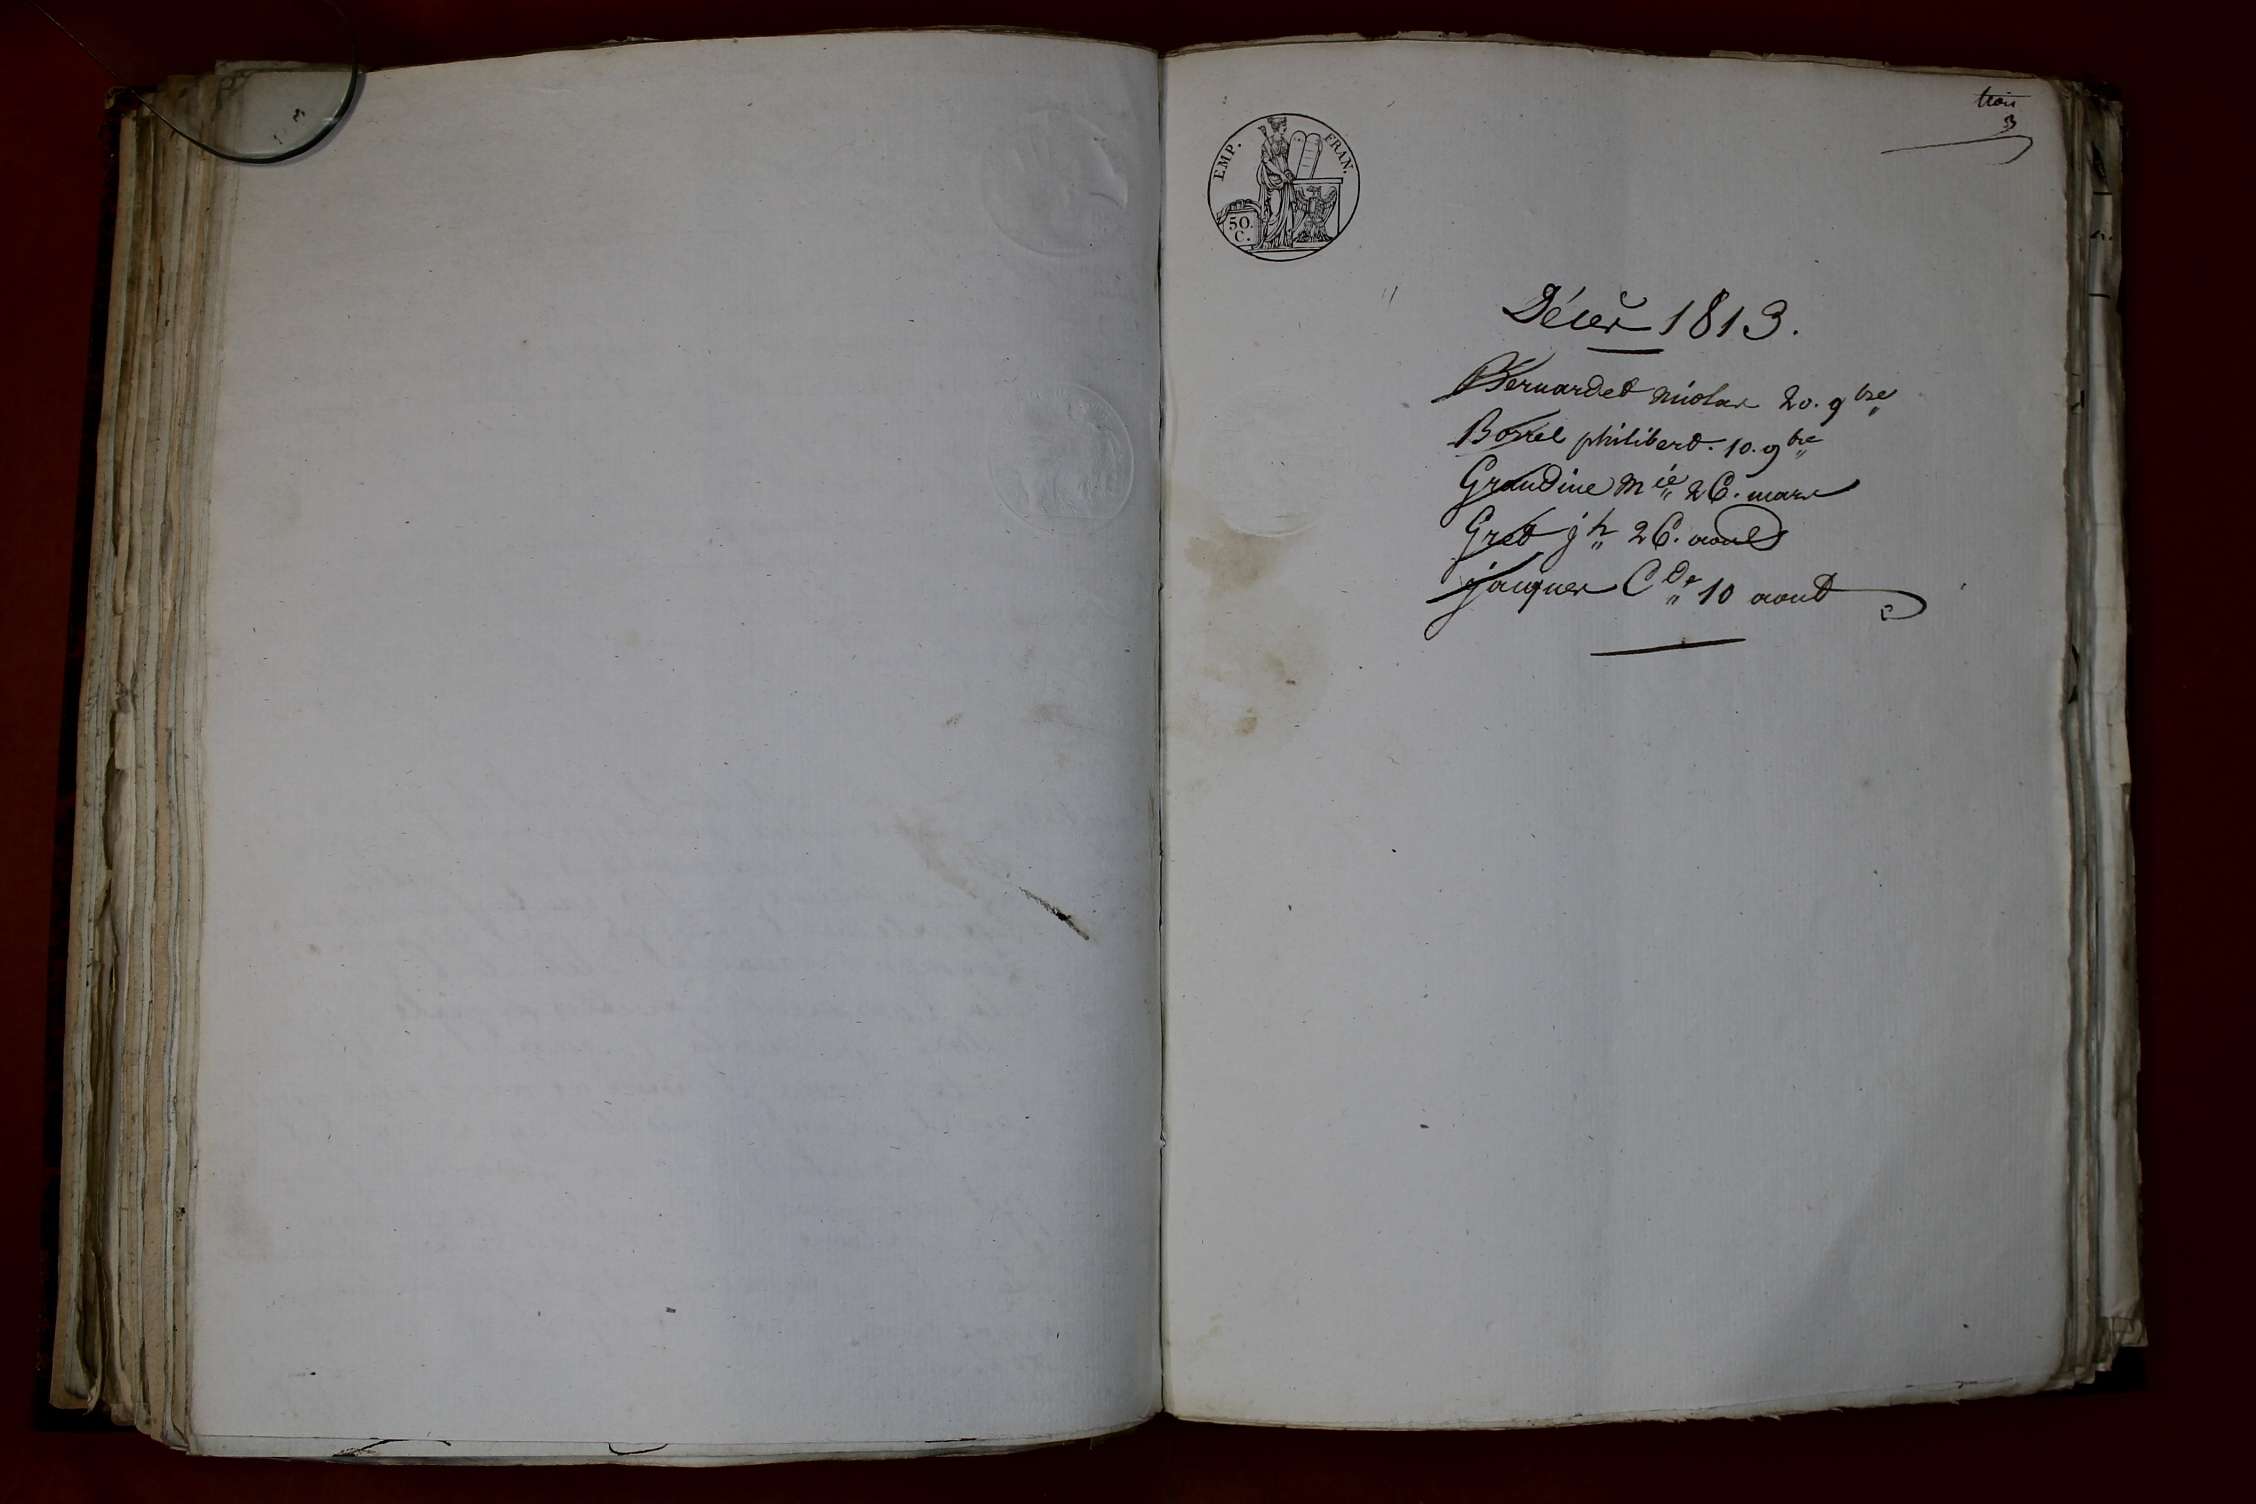 trois
3
EMP. FRAN.
50.
C.
Décès 1813.
Bernardet nicolas 20. 9bre
Borrel philibert. 10. 9bre
Grandine Mie 26. mars
Gret jh 26. aout
jacques Cde 10 aout